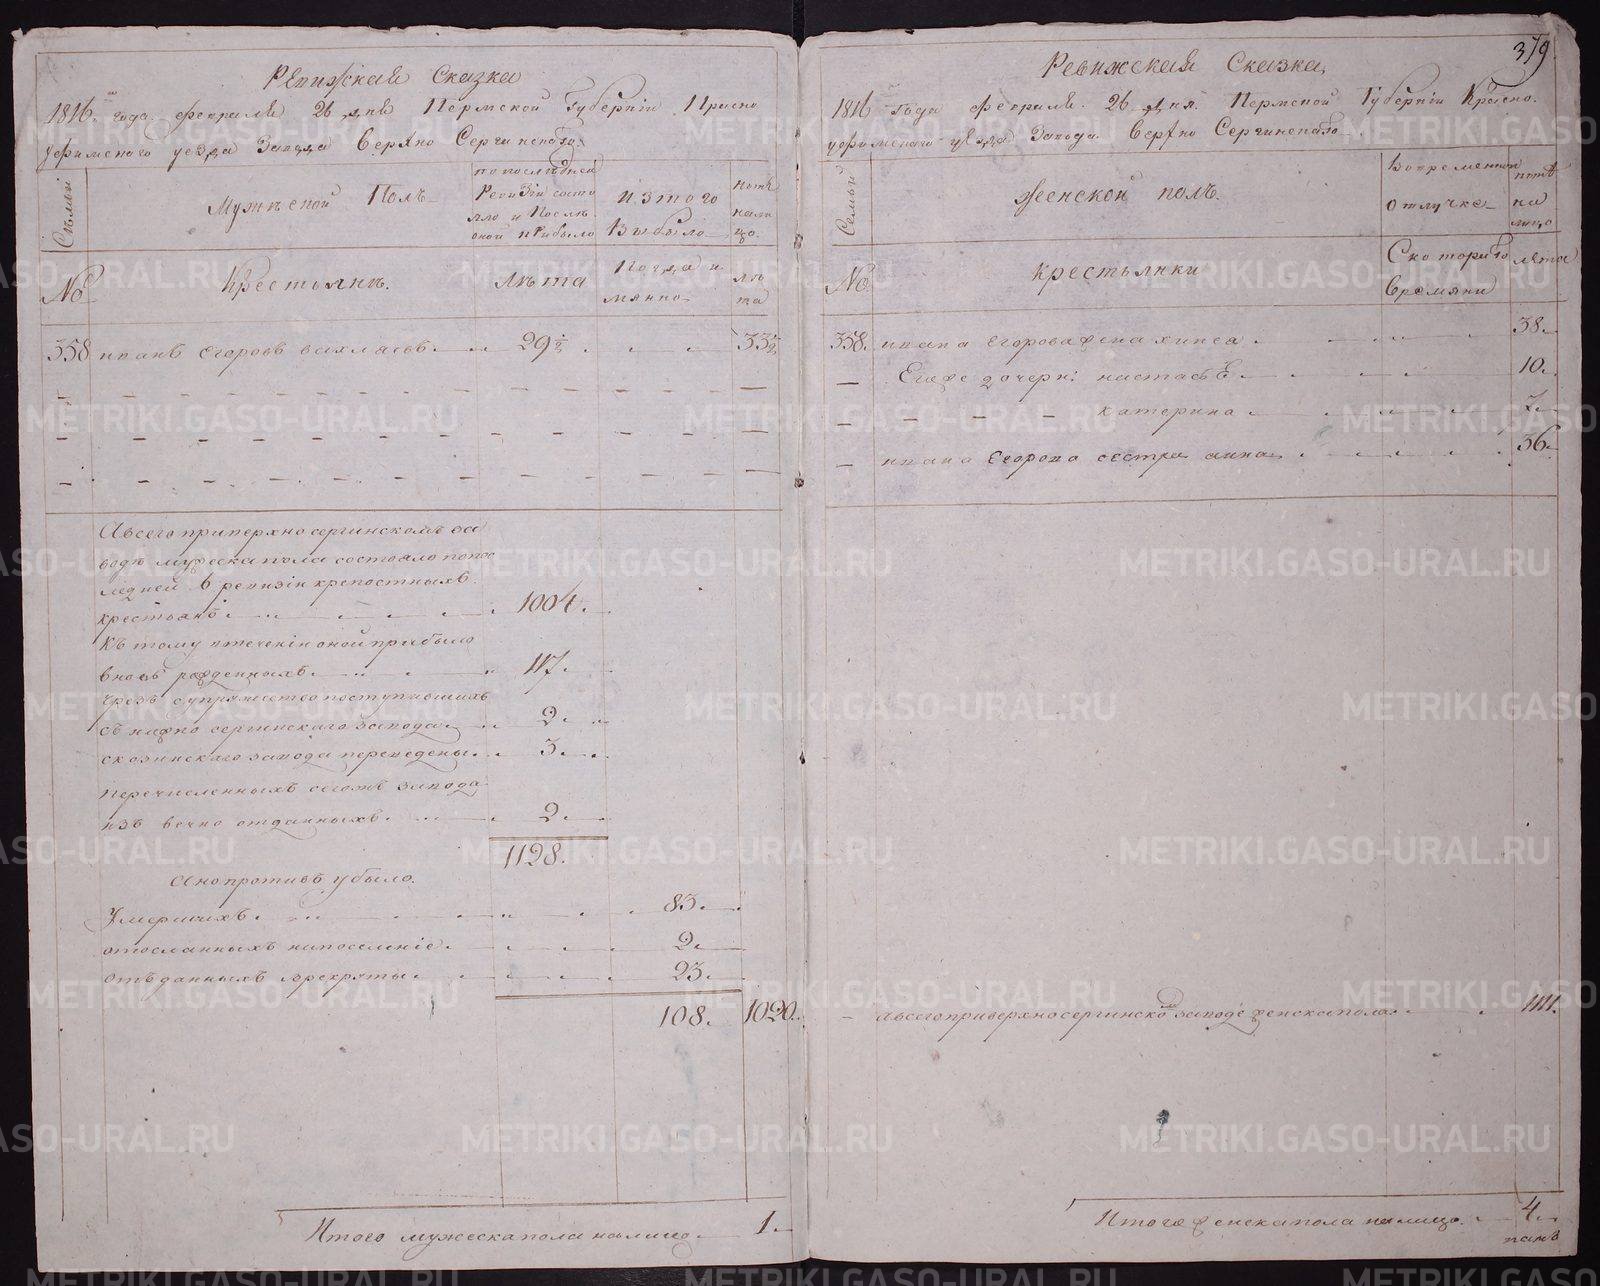 Ревижская Сказка
1816 года февраля 26 дня Пермской Губернiи Красно
уфимского уезда Завода Верхно Сергинскаго
Семьи
Мужеской Полъ
по последней
Ревизiи состо
яло и После
оной прибыло
изтого
Выбыло
ныне
нали
цо
№
Крестьянъ.
лѣта
Когда и
мянно
лѣ
та
358 иванъ егоровъ вахласьевъ 29½ 33½
Авсего приверхно сергинскомъ за
водѣ мужеска пола состояло попос
ледней ревизiи крепостныхъ
крестьянъ 1004.
Къ тому втеченiи оной прибыло
вновь рожденныхъ 117.
Чрезъ супружество поступившихъ
съ нижно сергинскаго завода 2.
скозинскаго завода переведены 3.
перечисленныхъ сегожъ завода
изъ вечно отданныхъ 2.
1128.
Анопротивъ убыло.
Умершихъ 83.
отосланныхъ напоселенiе 2.
отъданныхъ врекруты 23.
108. 1020.
Итого мужеска пола налицо 1.
379
Ревижская Сказка,
1816 года февраля 26 дня Пермской Губернiи Красно
уфимского уезда Завода Верхно Сергинскаго
Семьи
Женской полъ.
Вовременной
отлучке
ныне
на
лицо
№
крестьянки
Скоторого
времяни
лета
358. ивана егорова жена хинея 38.
Егоже дочери: настасья 10.
катерина 7.
ивана егорова сестра анна 36.
авсего приверхно сергинском заводе женска пола 1111.
Итого женска пола налицо 4.